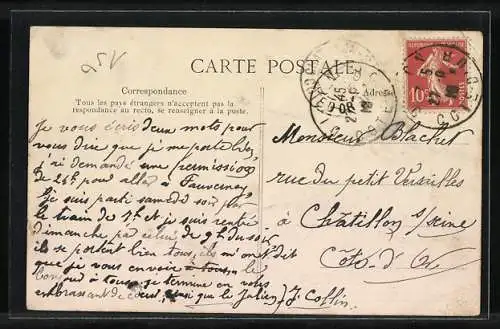 95V
CARTE POSTALE
Correspondance
Tous les pays étrangers n'acceptent pas la
correspondance au recto, se renseigner à la poste.
Je vous écris deux mots pour
vous dire que je me porte bien,
j'ai demandé une permission
de 24h pour aller à Faverney
je suis parti samedi soir par
le train de 7h et je suis rentré
dimanche par celui de 9h du soir
ils se portent bien tous, ils m'ont dit
que je vous envoie à tous, le
bonjour à tous, je termine en vous
embrassant de cœur ainsi que le Julien J. Collin
Adresse
Monsieur Blachet
rue du petit Versailles
à Châtillon s/seine
Côte-d'Or
10